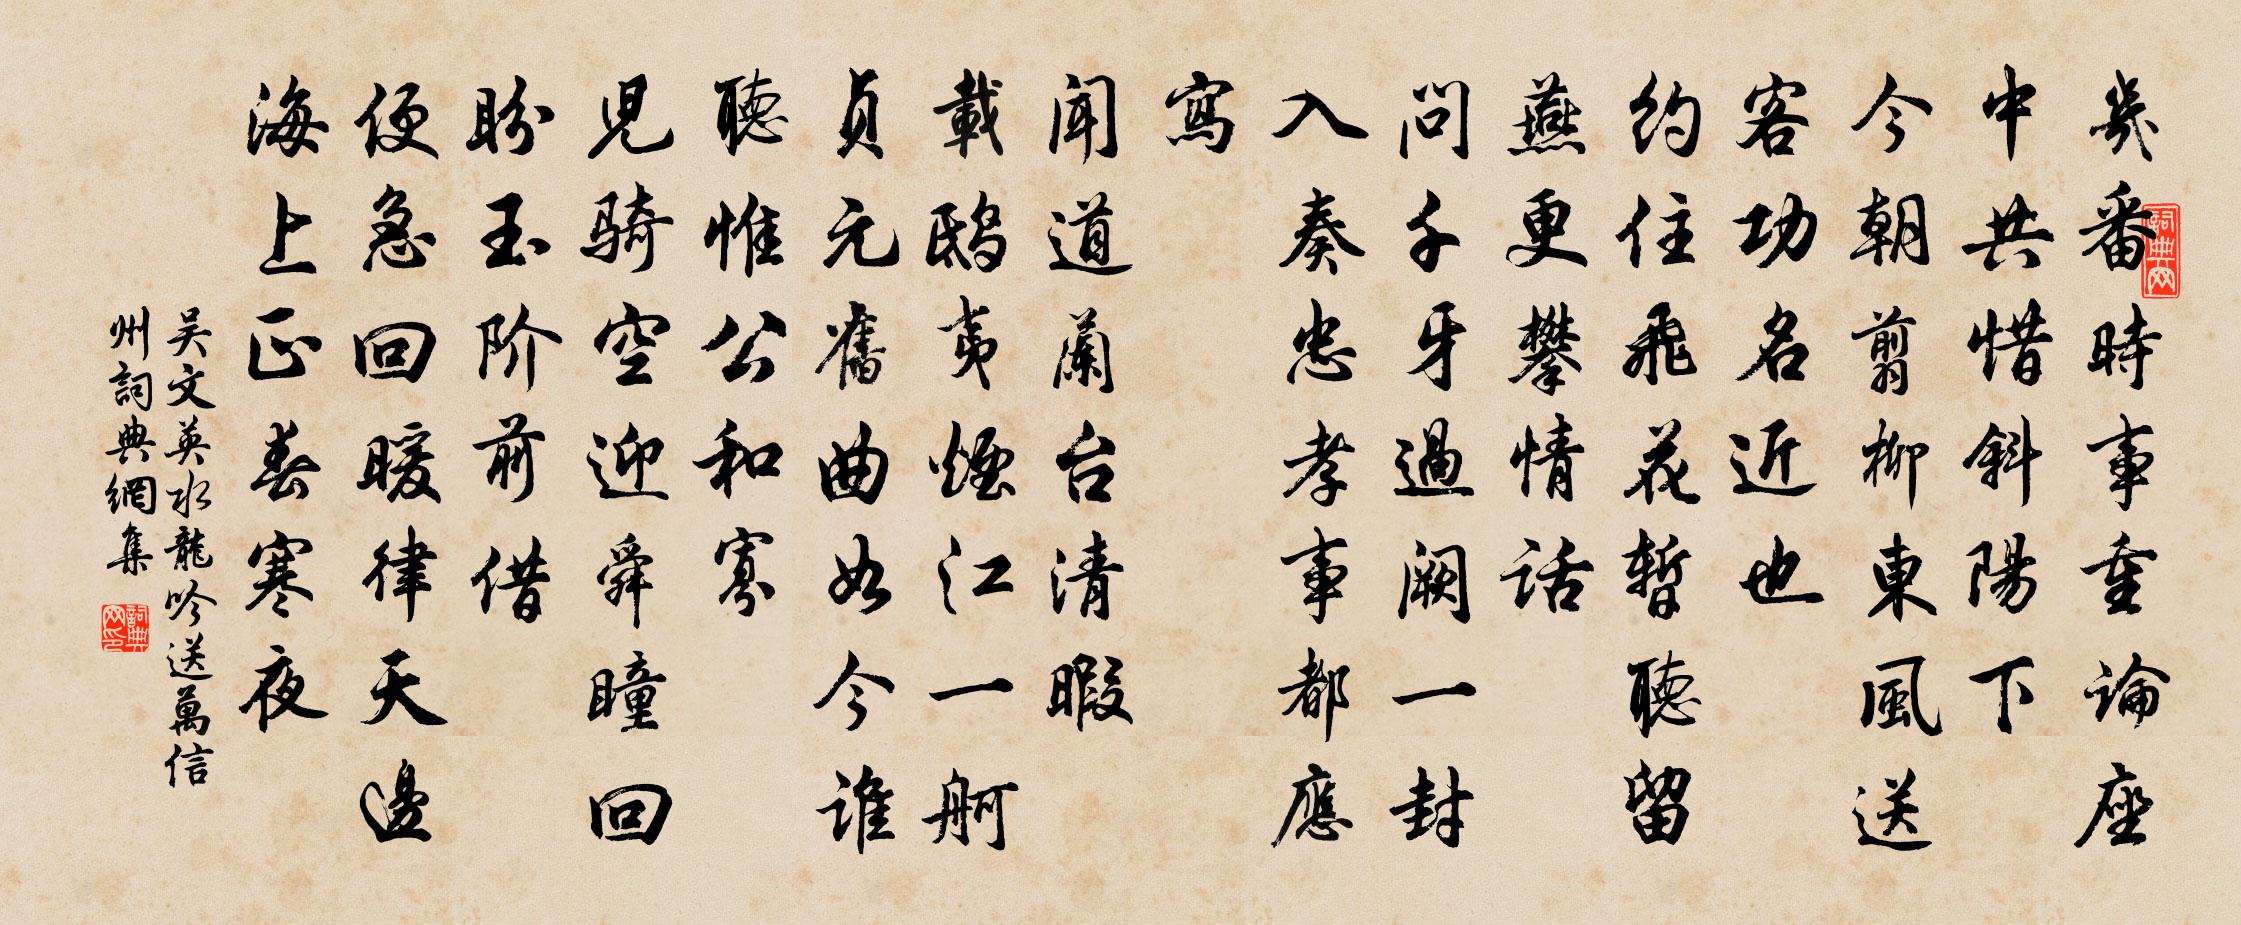 幾番時事重論座
中共惜斜陽下
今朝剪柳東風送
客功名近也
約住飛花暫聽留
燕更攀情話
問千牙過闕一封
入奏忠孝事都應
寫
聞道蘭台清暇
載鴟夷煙江一舸
貞元舊曲如今谁
聽惟公和寡
児騎空迎舜瞳回
盼玉阶前借
便急回暖律天邊
海上正春寒夜
吴文英水龍吟送萬信
州詞典網集
詞典网
詞典网印